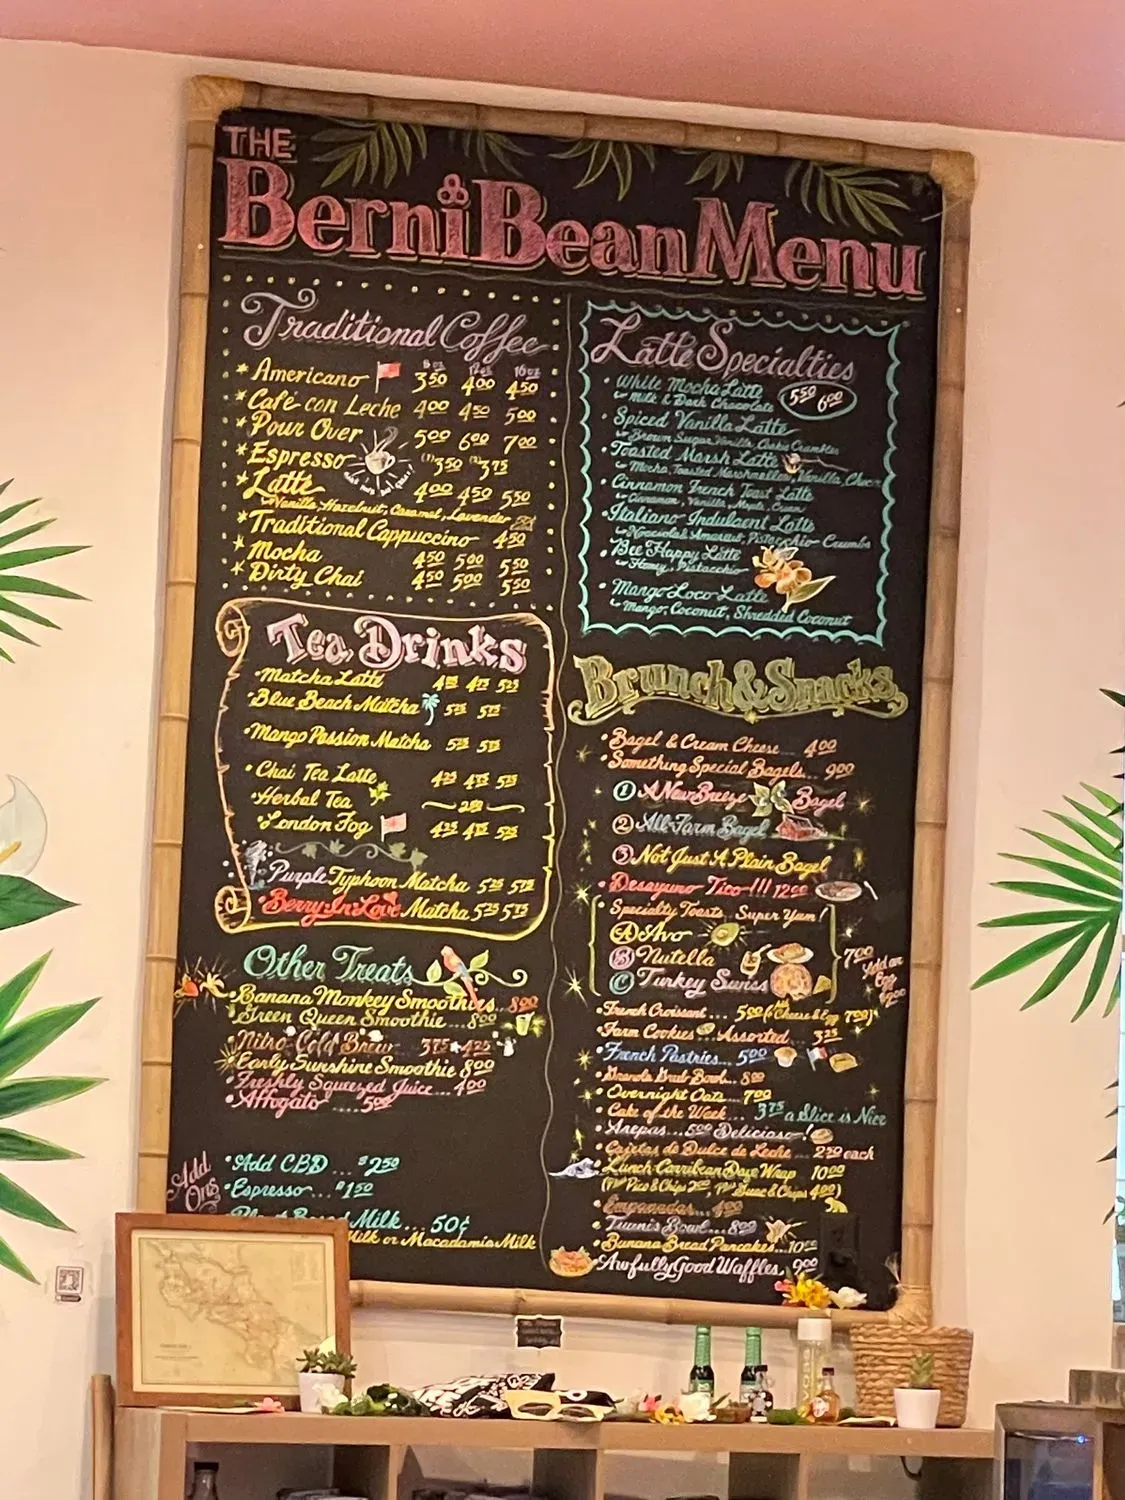 THE
Berni Bean Menu
Traditional Coffee
8oz 12oz 16oz
* Americano 3.50 4.00 4.50
* Café con Leche 4.00 4.50 5.00
* Pour Over 5.00 6.00 7.00
* Espresso (1) 3.50 (2) 3.75
* Latte 4.00 4.50 5.50
Vanilla, Hazelnut, Caramel, Lavender
* Traditional Cappuccino 4.50
* Mocha 4.50 5.00 5.50
* Dirty Chai 4.50 5.00 5.50
Tea Drinks
• Matcha Latte 5.25
• Blue Beach Matcha 5.25 5.75
• Mango Passion Matcha 5.25 5.75
• Chai Tea Latte 4.25 4.75 5.25
• Herbal Tea
• London Fog 4.25 4.75 5.25
• Purple Typhoon Matcha 5.25 5.75
• Berry In Love Matcha 5.25 5.75
Other Treats
• Banana Monkey Smoothies. 8.00
• Green Queen Smoothie ... 8.00
• Nitro Cold Brew... 3.75 4.25
• Early Sunshine Smoothie 8.00
• Freshly Squeezed Juice... 4.00
• Affogato ..... 5.00
Add Ons
• Add CBD ... $2.50
• Espresso... $1.50
Milk... 50¢
Milk or Macadamia Milk
Latte Specialties
• White Mocha Latte 5.50 6.00
Milk & Dark Chocolate
• Spiced Vanilla Latte
Brown Sugar, Vanilla, Cookie Crumbles
• Toasted Marsh Latte
Mocha, Toasted Marshmellow, Vanilla, Choc
• Cinnamon French Toast Latte
Cinnamon, Vanilla, Maple,
• Italiano Indulgent Latte
Nocciola & Amaretti, Pistacchio Crumbs
• Bee Happy Latte
Honey, Pistacchio
• Mango Loco Latte
Mango, Coconut, Shredded Coconut
Brunch & Snacks
• Bagel & Cream Cheese... 4.00
• Something Special Bagels... 9.00
1 A New Breeze Bagel
2 All-Farm Bagel
3 Not Just A Plain Bagel
• Desayuno Tico!!! 12.00
• Specialty Toasts.. Super Yum!
A Avo
B Nutella 7.00
C Turkey Swiss
Add an Egg $2.00
• French Croissant.... 5.00 (Add Cheese & Egg 7.00)
• Farm Cookies Assorted.. 3.25
• French Pastries... 5.00
• Granola Bowl... 8.00
• Overnight Oats... 7.00
• Cake of the Week... 3.75 a Slice is Nice
• Arepas... 5.00 Delicioso!
• Cajetas de Dulce de Leche ... each
• Lunch Carribean Daze Wrap 10.00
Pico & Chips & Chips 4.00)
• Empanadas... 4.00
Bowl... 8.00
• Banana Bread Pancakes... 10.00
• Awfully Good Waffles. 9.00